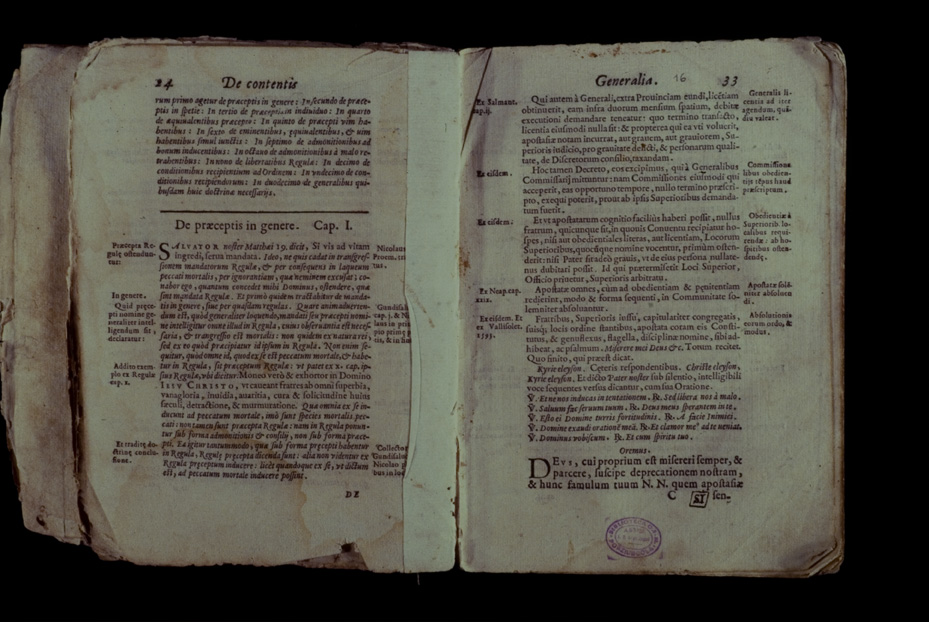 24 De contentis
rum primo agetur de præceptis in genere: In secundo de præce-
ptis in spetie: In tertio de præceptis, in indiuiduo: In quarto
de æquiualentibus præcepto: In quinto de præceptis vim ha-
bentibus: In sexto de eminentibus, equiualentibus, & vim
habentibus simul iunctis: In septimo de admonitionibus ad
bonum inducentibus: In octauo de admonitionibus à malo re-
trahentibus: In nono de libertatibus Regulæ: In decimo de
conditionibus recipientium ad Ordinem: In vndecimo de con-
ditionibus recipiendorum: In duodecimo de generalibus qui-
busdam huic doctrinæ necessarijs.
De præceptis in genere. Cap. I.
Præcepta Re-
gulę ostendun-
tur:
SALVATOR noster Matthæi 19. dicit, Si vis ad vitam
ingredi, serua mandata. Ideo, ne quis cadat in transgres-
sionem mandatorum Regulæ, & per consequens in laqueum
peccati mortalis, per ignorantiam, quæ neminem excusat; co-
nabor ego, quantum concedet mihi Dominus, ostendere, quæ
sint mandata Regulæ. Et primo quidem tractabitur de manda-
tis in genere, siue per quasdam regulas. Quare animaduerten-
dum est, quòd generaliter loquendo, mandati seu præcepti nomi-
ne intelligitur omne illud in Regula, cuius obseruantia est neces-
saria, & transgressio est mortalis: non quidem ex natura rei:
sed ex eo quòd præcipiatur id ipsum in Regula. Non enim se-
quitur, quòd omne id, quod ex se est peccatum mortale, & habe-
tur in Regula, sit præceptum Regulæ: vt patet ex x. cap. ip-
sius Regulæ, vbi dicitur: Moneo verò & exhortor in Domino
IESV CHRISTO, vt caueant fratres ab omni superbia,
vanagloria, inuidia, auaritia, cura & solicitudine huius
sæculi, detractione, & murmuratione. Quæ omnia ex se in-
ducunt ad peccatum mortale, imò sunt species mortalis pec-
cati: non tamen sunt præcepta Regulæ: nam in Regula ponun-
tur sub forma admonitionis & consilij, non sub forma præce-
pti. Ea igitur tantummodo, quæ sub forma præcepti habentur
in Regula, Regulę pręcepta dicenda sunt: alia non videntur ex
Regula pręceptum inducere: licèt quandoque ex se, vt dictum
est, ad peccatum mortale inducere possint.
In genere.
Quid pręce-
pti nomine ge-
neraliter intel-
ligendum sit,
declaratur:
Addito exem-
plo ex Regulæ
cap. x.
Et tradita do-
ctrinę conclu-
sione.
Nicolaus
DE
Generalia. 16 33
Qui autem à Generali, extra Prouinciam eundi, licẽtiam
obtinuerit, eam infra duorum mensium spatium, debitæ
executioni demandare teneatur: quo termino transacto,
licentia eiusmodi nulla sit: & propterea qui ea vti voluerit,
apostasiæ notam incurrat, aut grauem, aut grauiorem, Su-
perioris iudicio, pro grauitate delicti, & personarum quali-
tate, de Discretorum consilio, taxandam.
Hoc tamen Decreto, eos excipimus, qui à Generalibus
Commissarij mittuntur: nam Commissiones eiusmodi qui
acceperit, eas opportuno tempore, nullo termino præscri-
pto, exequi poterit, prout ab ipsis Superioribus demanda-
tum fuerit.
Et vt apostatarum cognitio faciliùs haberi possit, nullus
fratrum, quicunque sit, in quouis Conuentu recipiatur ho-
spes, nisi aut obedientiales literas, aut licentiam, Locorum
Superioribus, quocũque nomine vocentur, primùm osten-
derit: nisi Pater sit adeò grauis, vt de eius persona nullate-
nus dubitari possit. Id qui prætermiserit Loci Superior,
Officio priuetur, Superioris arbitratu.
Apostatæ omnes, cùm ad obedientiam & pœnitentiam
redierint, modo & forma sequenti, in Communitate so-
lemniter absoluantur.
Fratribus, Superioris iussu, capitulariter congregatis,
suisq; locis ordine stantibus, apostata coram eis Consti-
tutus, & genuflexus, flagella, disciplinæ nomine, sibi ad-
hibeat, ac psalmum. Miserere mei Deus &c. Totum recitet.
Quo finito, qui præest dicat.
Kyrie eleyson. Ceteris respondentibus. Christe eleyson,
Kyrie eleyson. Et dicto Pater noster sub silentio, intelligibili
voce sequentes versus dicantur, cum sua Oratione.
℣. Et ne nos inducas in tentationem. ℟. Sed libera nos à malo.
℣. Saluum fac seruum tuum. ℟. Deus meus sperantem in te.
℣. Esto ei Domine turris fortitudinis. ℟. A facie Inimici.
℣. Domine exaudi orationẽ meã. ℟. Et clamor me⁹ ad te veniat.
℣. Dominus vobiscum. ℟. Et cum spiritu tuo.
Oremus.
DEVS, cui proprium est misereri semper, &
parcere, suscipe deprecationem nostram,
& hunc famulum tuum N. N. quem apostasiæ
C sen-
Ex Salmant.
cap. ij.
Ex eisdem.
Ex eisdem.
Ex Neap. cap.
xxix.
Ex eisdem. Et
ex Vallisolet.
1593.
Generalis li-
centia ad iter
agendum, quã-
diu valeat.
Commissiona
libus obedien-
tijs tẽpus haud
præscriptum.
Obedientiæ à
Superiorib. lo-
calibus requi-
rendæ: ab ho-
spitibus osten-
dendę.
Apostatæ sole-
niter absoluen
di.
Absolutionis
eorum ordo, &
modus.